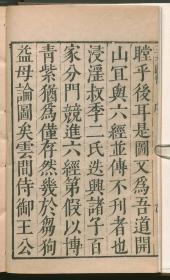 瞠乎後耳是圖又為吾道開
山冝與六經並傳不刋者也
浸淫叔季二氏迭興諸子百
家分門競進六經第假以博
青紫猶為僅存然幾於芻狗
益母論圖矣雲間侍御王公